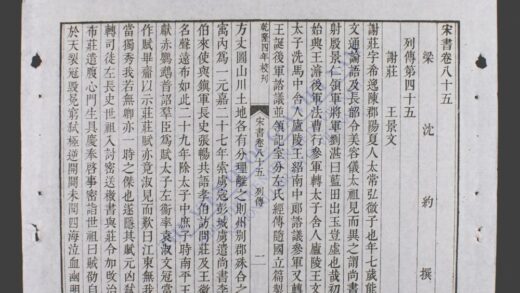 宋書卷八十五
梁 沈 約 撰
列傳第四十五
謝莊 王景文
謝莊字希逸陳郡陽夏人太常弘微子也年七歲能
文通論語及長部令美容儀太祖見而異之謂尚書
射殷景仁領軍將軍劉湛曰藍田出玉豈虛也哉初
始興王濬後軍法曹行參軍轉太子舍人廬陵王文
太子洗馬中舍人廬陵王紹南中郎諮議參軍又轉
王誕後軍諮議並領記室分左氏經傳隨國立篇製
乾隆四年校刊 宋書卷八十五 列傳 一
方丈圖山川土地各有分理離之則州別郡殊合之
寓內為一元嘉二十七年索虜寇彭城虜遣尚書李
伯來使與鎮軍長史張暢共語孝伯訪問莊及王徽
名聲遠布如此二十九年除太子中庶子時南平王
獻赤鸚鵡普詔群臣為賦太子左衛率袁淑文冠當
作賦畢齎以示莊莊賦亦竟淑見而歎曰江東無我
當獨秀我若無卿亦一時之傑也遂隱其賦元凶弒
轉司徒左長史世祖入討密送檄書與莊令加改治
布莊遣腹心門生具慶奉啟事密詣世祖曰賊劭自
於天裂冠毀冕窮弒極逆開闢未聞四海泣血幽明